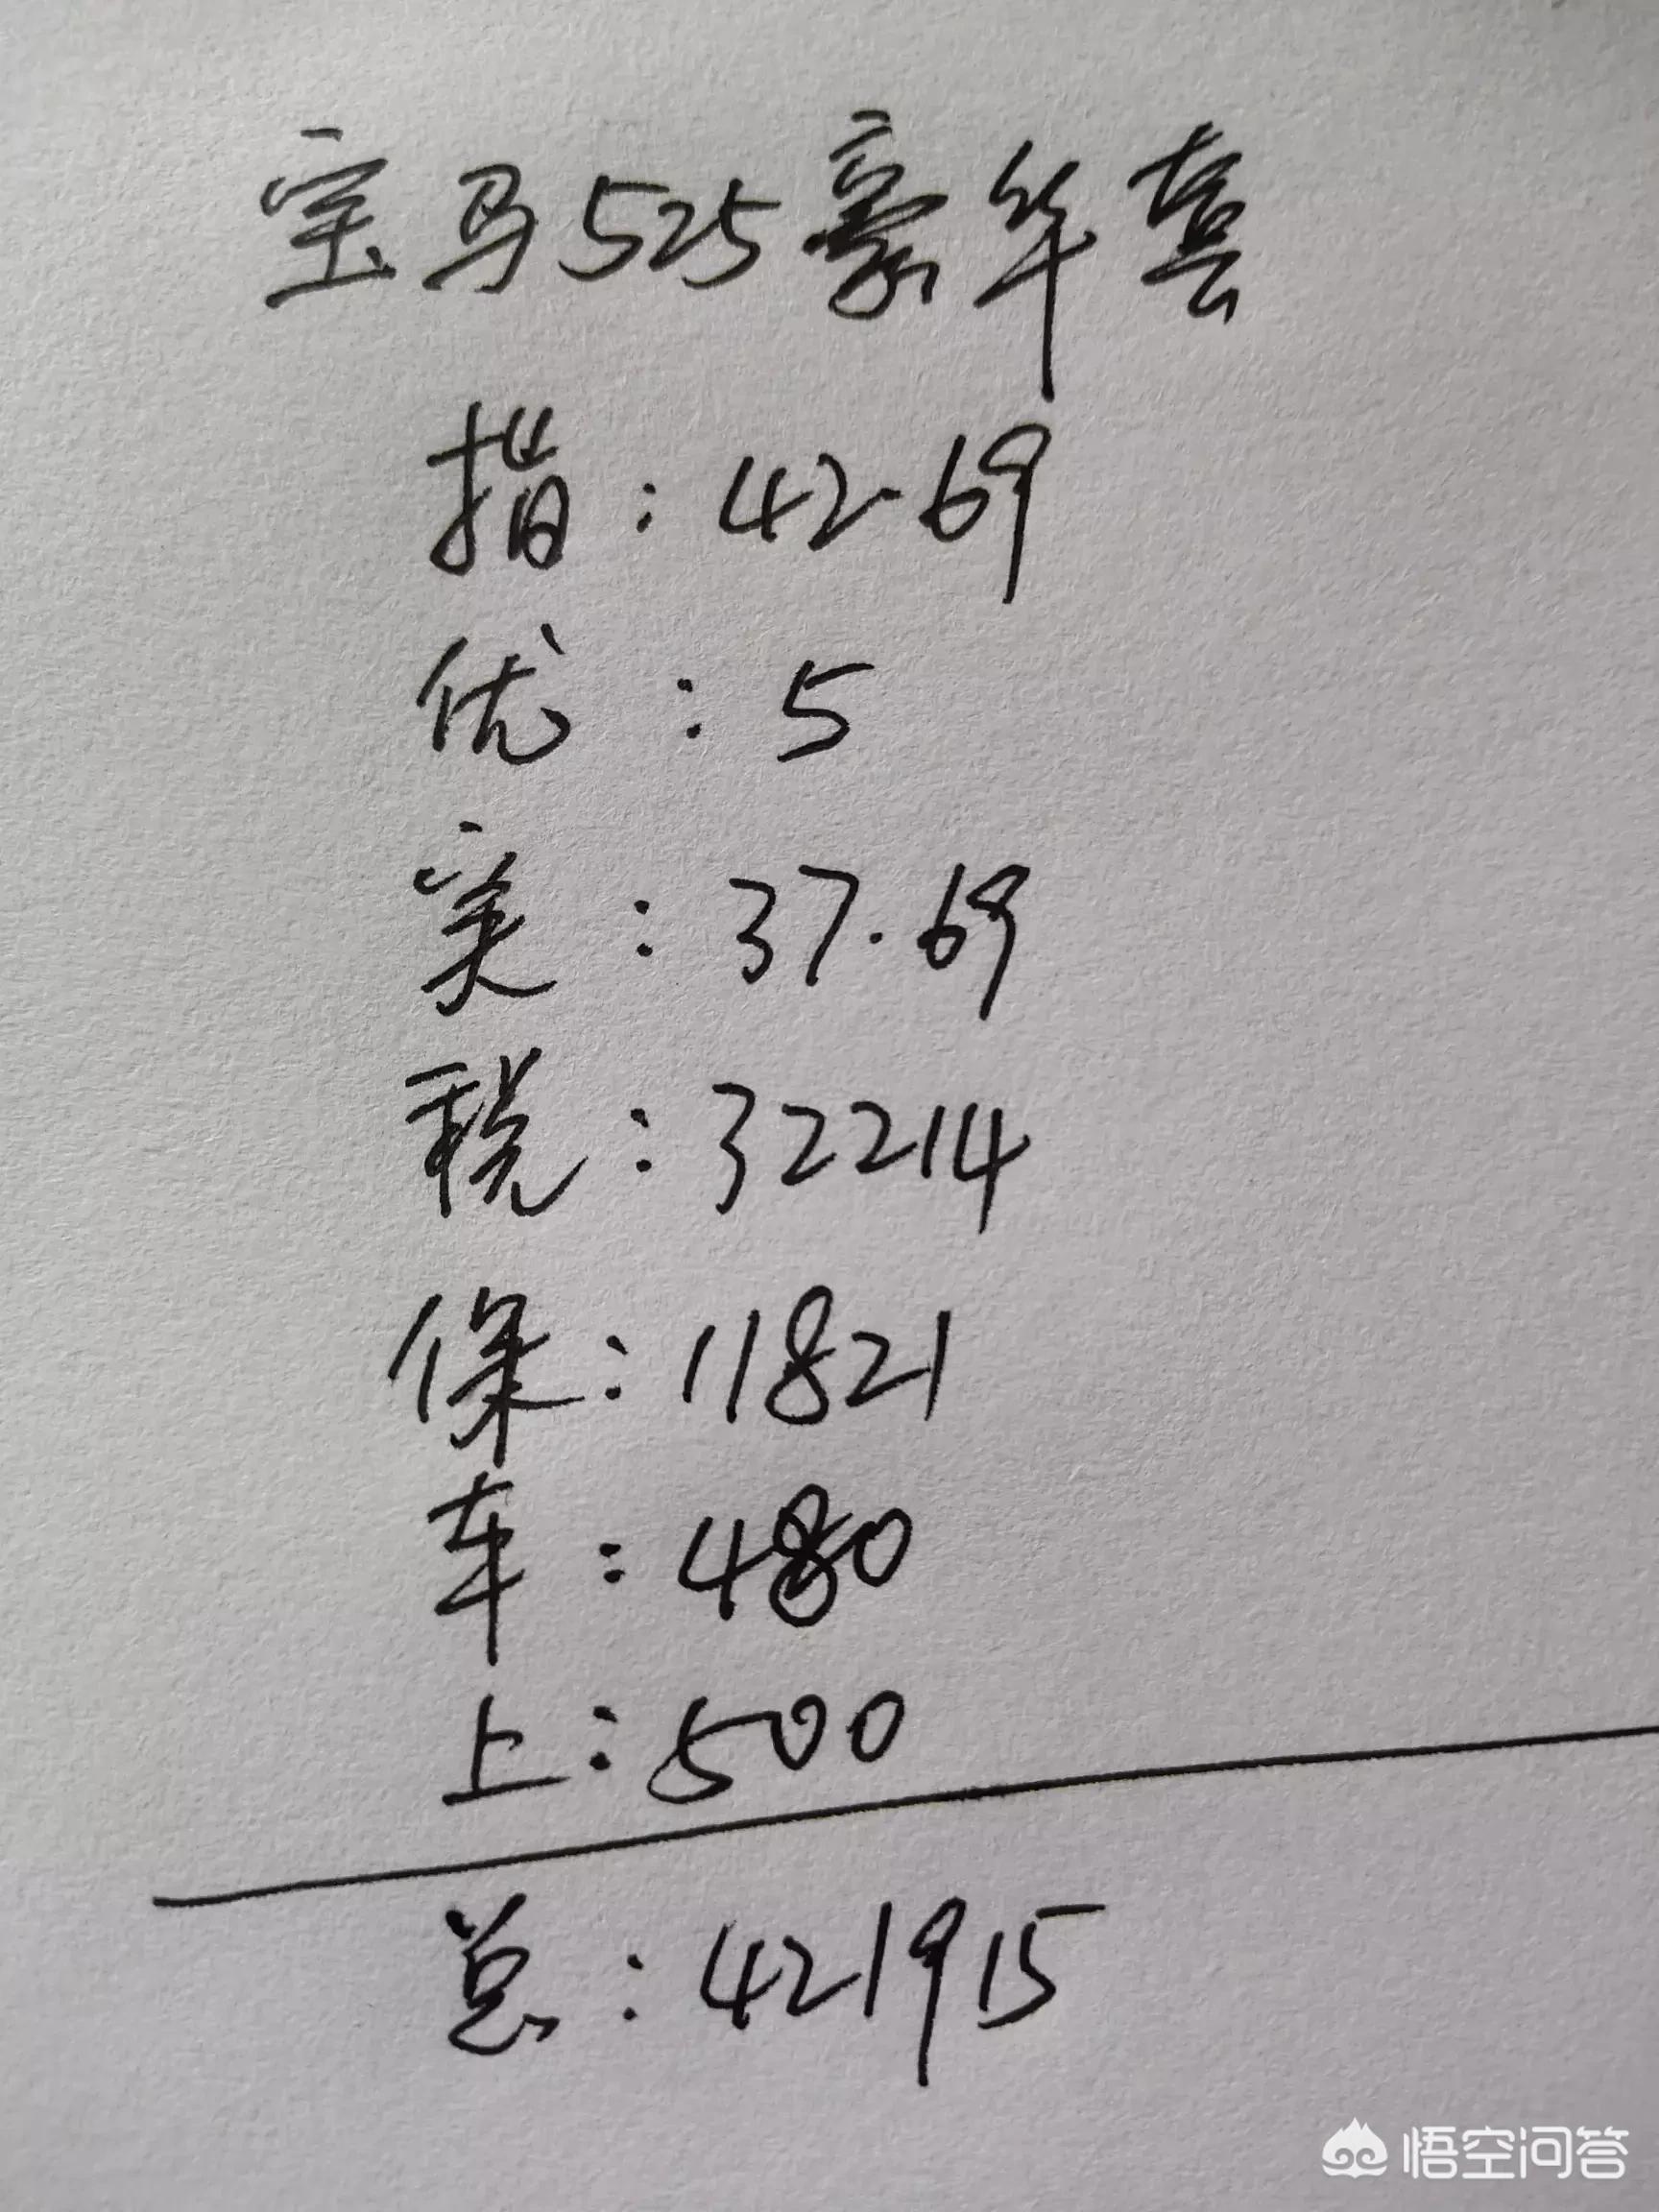 宝马525豪华套
指：42.69
优：5
实：37.69
税：32214
保：11821
车：480
上：500
总：421915
悟空问答